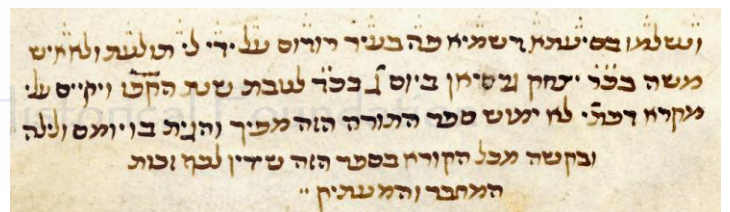 ונשלמו בסיעתא דשמיא פה בעיר רורוס על ידי לי תולעת ולא איש
משה בכ"ר יצחק ביום ג' בכ"ד לטבת שנת ויקויים עלי
מקרא דכתי' לא ימוש ספר התורה הזה מפיך והגית בו יומם ולילה
ובקשה מכל הקורא בספר הזה שידין לכף זכות
המחבר והמעתיק